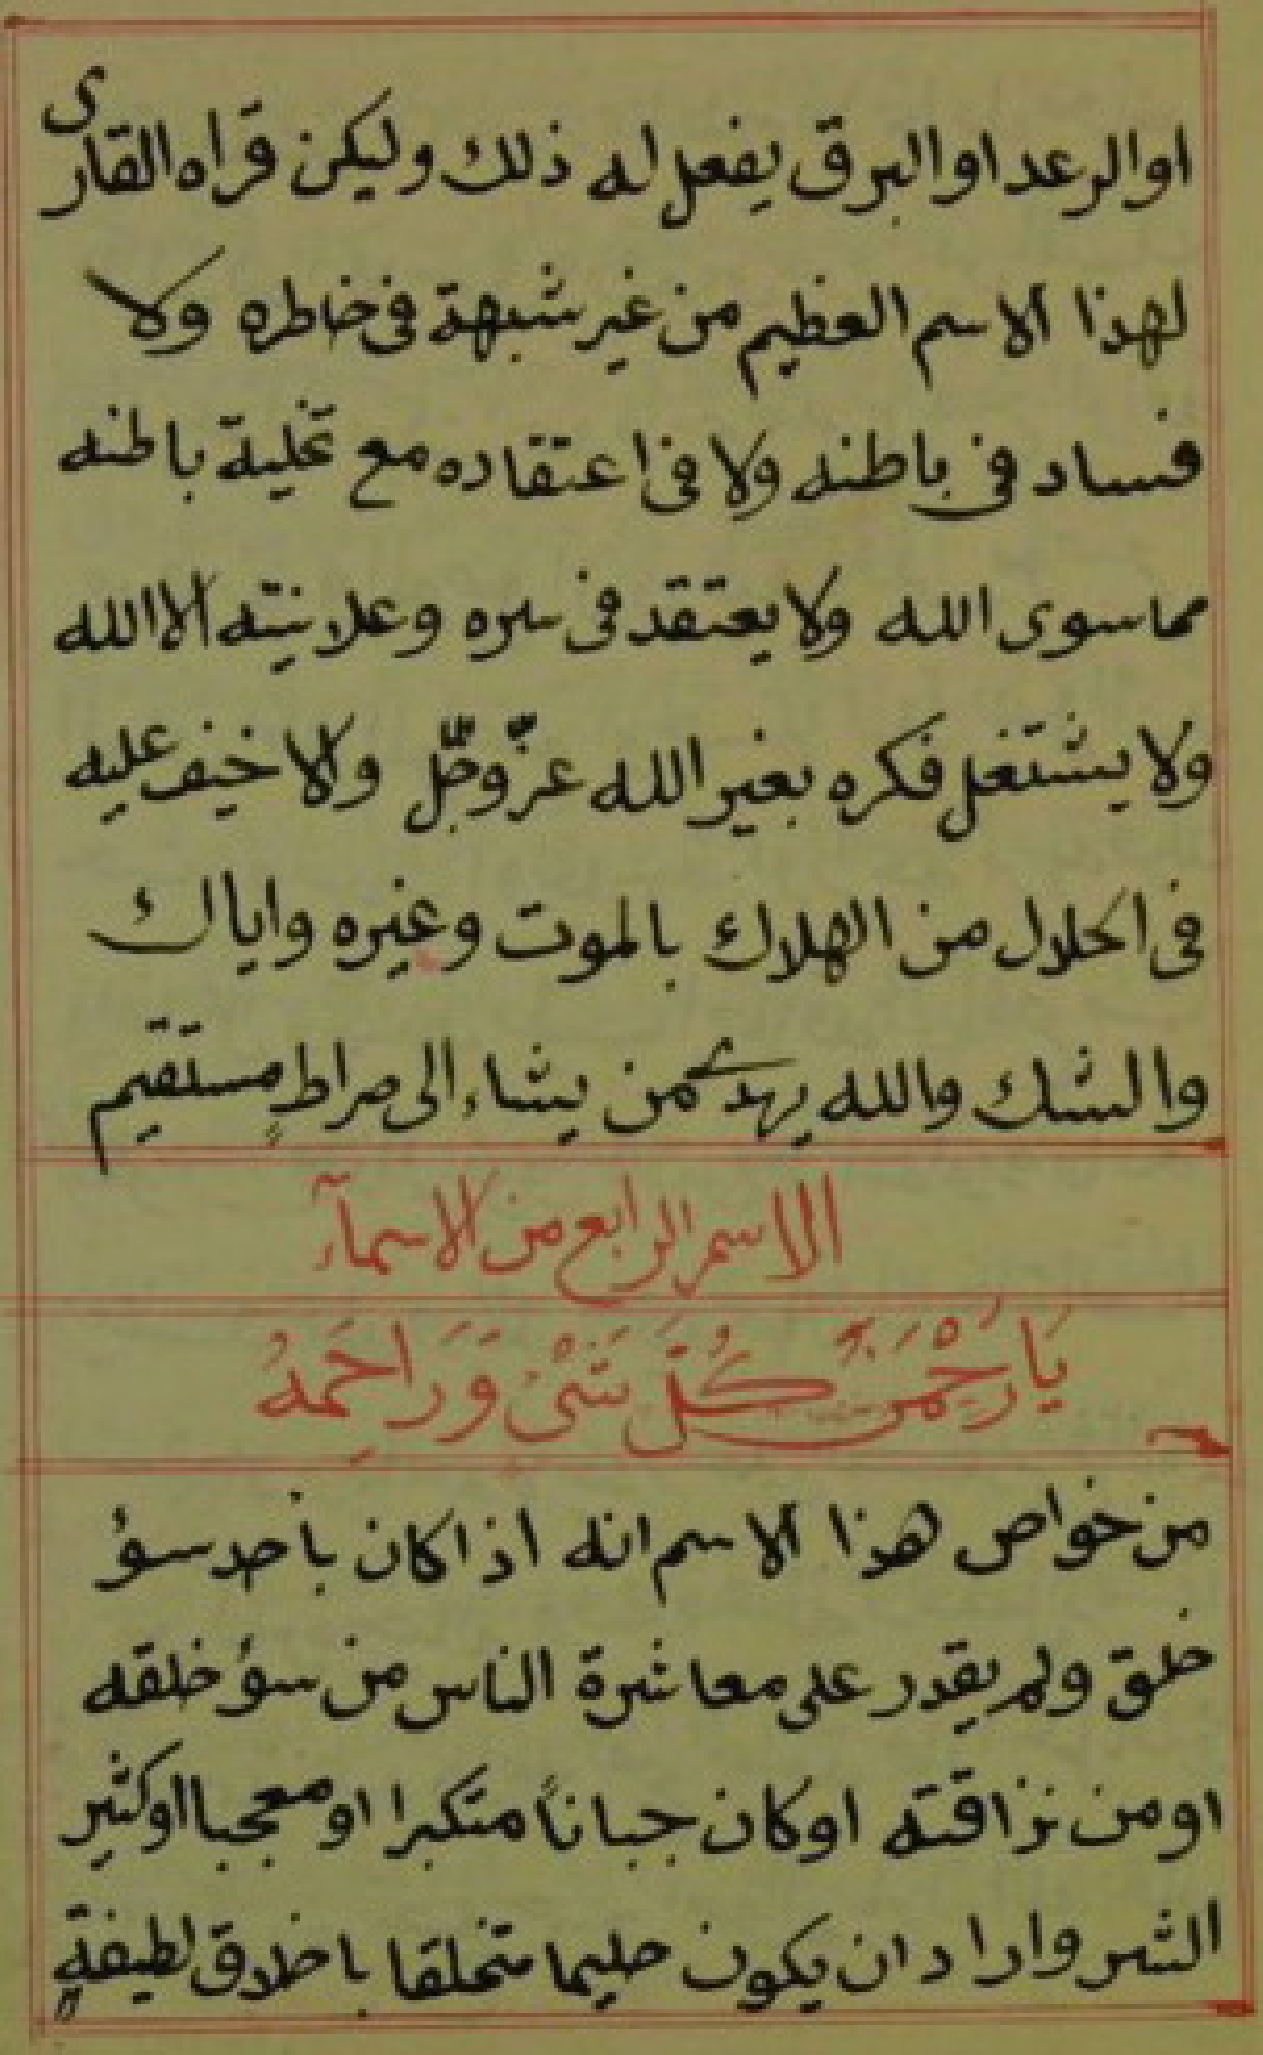 او الرعد او البرق يفعل له ذلك وليكن قراه القارى
لهذا الاسم العظيم من غير شبهة فى خاطره ولا
فساد فى باطنه ولا فى اعتقاده مع تخلية باطنه
مما سوى الله ولا يعتقد فى سره وعلانيته الا الله
ولا يشتغل فكره بغير الله عزّ وجّل والا خيف عليه
فى الحلال من الهلاك بالموت وغيره واياك
والشك والله يهدى من يشاء الى صراطٍ مستقيم
الاسم الرابع من الاسمآء
يَا رَحْمَنَ كُلِّ شَىْءٍ وَرَاحِمَهُ
من خواص هذا الاسم انه اذا كان بأحد سؤ
خلق ولم يقدر على معاشرة الناس من سؤ خلقه
او من نزاقته او كان جباناً متكبرا او معجبا او كثير
الشر واراد ان يكون حليما متخلقا باخلاق لطيفةٍ